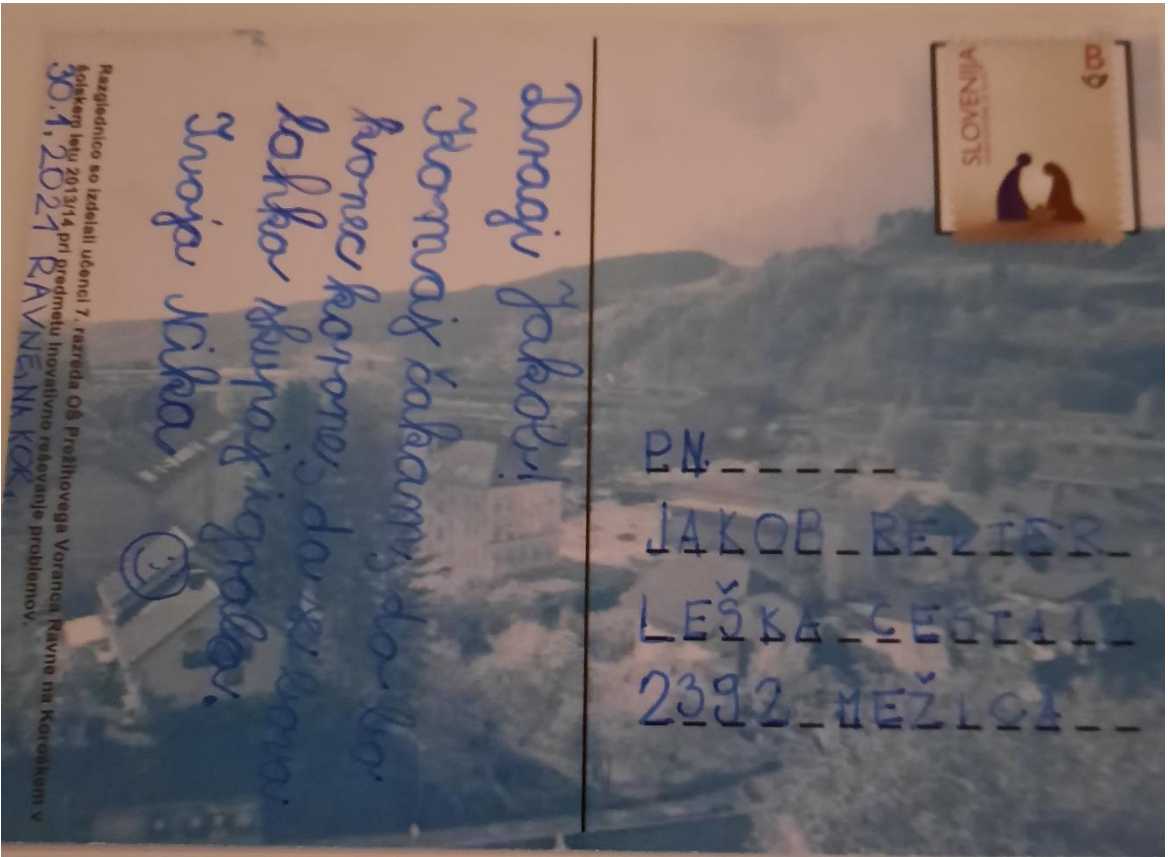 Dragi Jakob!
Komaj čakam, da bo
konec korone, da se bova
lahko skupaj igrala.
Tvoja Nika
Razglednico so izdelali učenci 7. razreda OŠ Prežihovega Voranca Ravne na Koroškem v
šolskem letu 2013/14 pri predmetu Inovativno reševanje problemov.
30.1.2021 RAVNE NA KOR.
SLOVENIJA
B
PN
JAKOB
LEŠKA CESTA
2392 MEŽICA